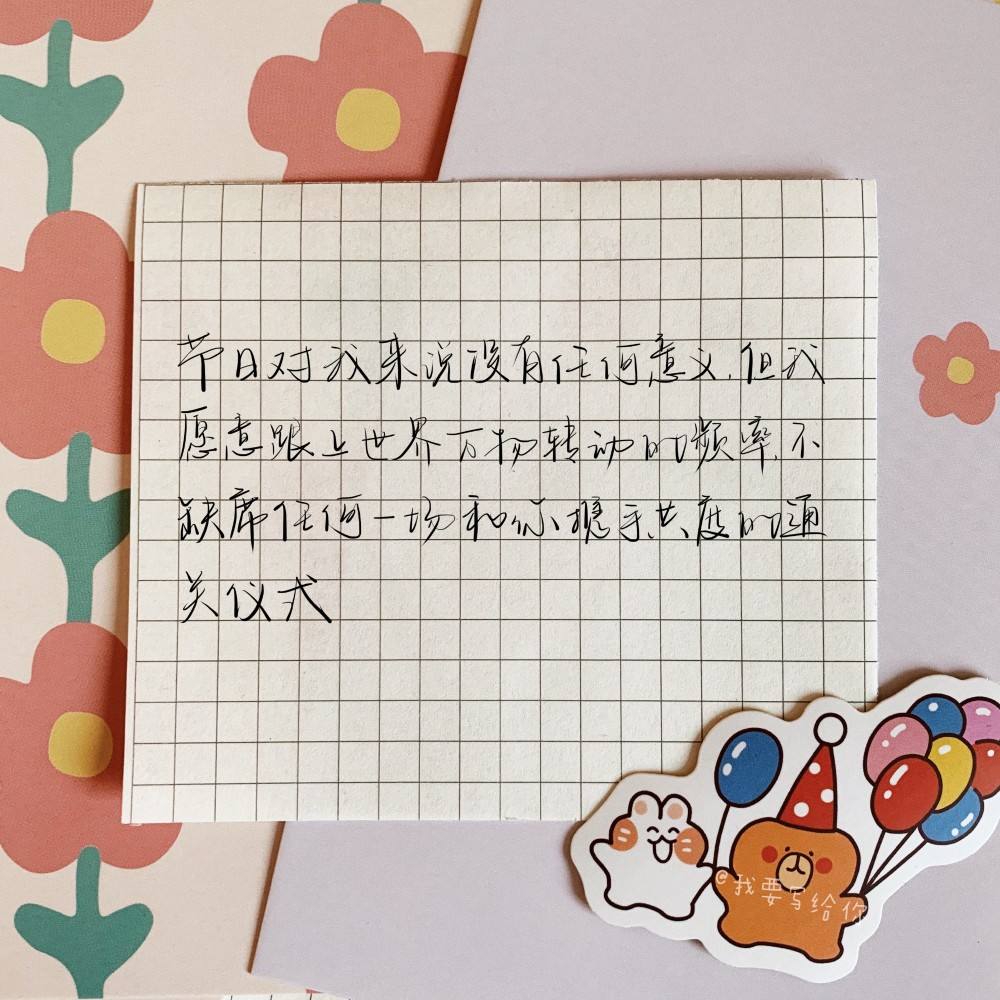 节日对我来说没有任何意义.但我
愿意跟上世界万物转动的频率.不
缺席任何一场和你携手共度的通
关仪式
@我要写给你